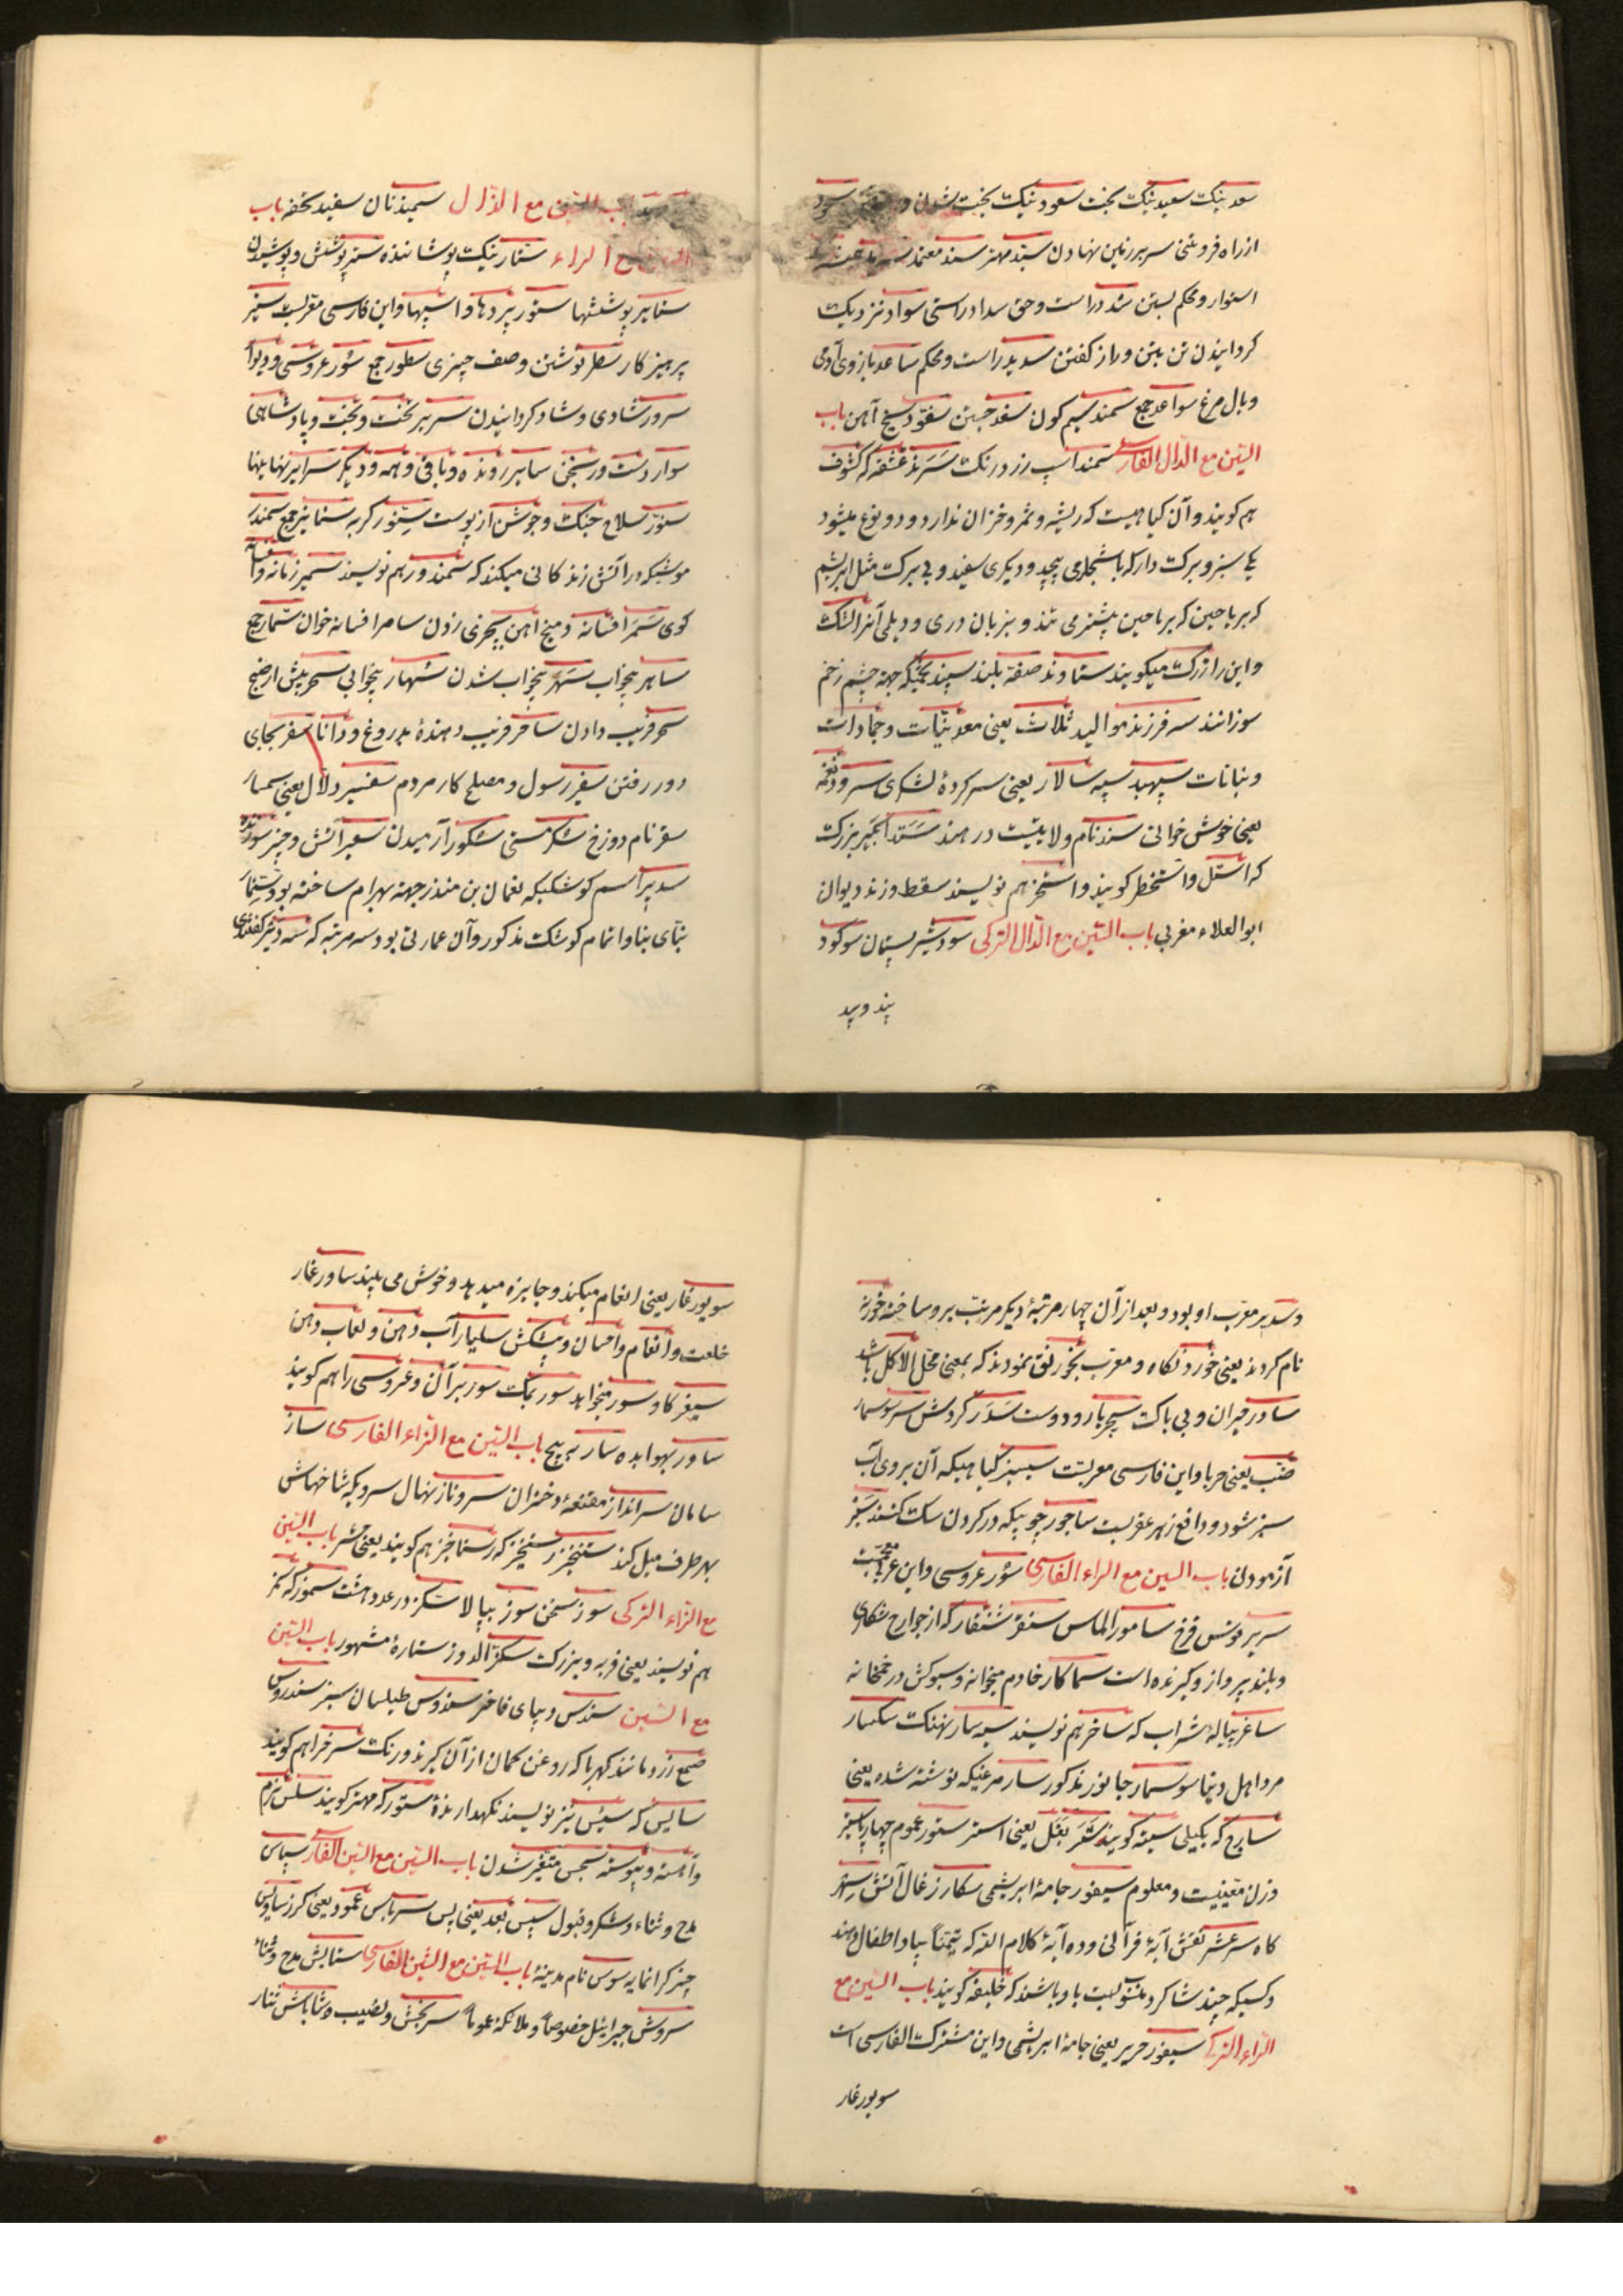 سعد نیکت سعید نیکت بخت سعود نیکت بخت شدن
از راه فروتنی سر بر زمین نهادن سید مهتر سند معتمد
استوار و محکم بستن سَد راست و حق سداد راستی سواد نزدیک
کردانیدن تن بتن و راز کفتن سدید راست و محکم ساعد بازوی آدمی
و بال مرغ سواعد جمع سمند سیم کون سفد جستن سفود سیخ آهن باب
السّین مع الدّال الفارسی سمند اسپ زرد رنکت سَرَند عَشَقه که کشوث
هم کویند و آن کیاهیست که ریشه و ثمر و خزان ندارد و دو نوع میشود
یکی سبز و برکت دار که باشجار می پیچد و دیکری سفید و بی برکت مثل ابریشم
که بر ریاحین بیشتر می تند و بزبان دری و دیلمی آنرا
و این را زرکت میکویند ستاوند صفه بلند سپند تخمیکه جهة چشم زخم
سوزانند سه فرزند موالید ثلاث یعنی معدنیّات و جمادات
و نباتات سپهبد سپه سالار یعنی سر کردهٔ لشکری سرود نغمه
یعنی خوش خوانی سند نام ولایتیست در هند سَتَد آبکیر بزرکت
که استل و استخطر کویند و استخر هم نویسند سقط وزند دیوان
ابوالعلاء مغربی باب السّین مع الدّال الترکی سود شیر
پند وید
باب السّین مع الذّال سمیذ نان سفید تحفه باب
السّین مع الراء ستار نیکت پوشاننده ستر پوشش و پوشیدن
ستایر پوششها ستور پردها و اسپها و این فارسی معرّبست ستیر
پرهیز کار سطر نوشتن وصف چیزی سطور جمع سُور عروسی و دیوار
سرور شادی و شاد کردانیدن سریر تخت و بخت و پادشاهی
سوار دست ورنجن سایر رونده و باقی و همه و دیکر سرایر نهانیها
سنوّر سلاح جنکت و جوشن از پوست سِنّور کربه سنانیر جمع سمندر
موشیکه در آتش زندکانی میکند که سَمندور هم نویسند سمیر زمانه و افسانه
کوی سَمَر افسانه و میخ آهن بچیزی زدن سامر افسانه خوان سُمّار جمع
ساهر بیخواب سَهَر بیخواب شدن سُهار بیخوابی سحر پیش از صبح
سحر فریب دادن ساحر فریب دهندهٔ بدروغ و دانا سفر بجای
دور رفتن سفیر رسول و مصلح کار مردم سفسیر دلّال یعنی سمسار
سقر نام دوزخ سُکر مستی سُکور آرمیدن سعیر آتش و چیز سوزنده
سدیر اسم کوشکیکه نعمان بن منذر جهة بهرام ساخته بود و سِنِمّار
بنّای بنا و اتمام کوشکت مذکور و آن عمارتی بود سه مرتبه که سه دیر کفتندی
و سدیر معرّب او بود و بعد از آن چهارم مرتبهٔ دیکر مرتّب بر و ساخته خورنه
نام کردند یعنی خوردنکاه و معرّب بخورنق نمودند که بمعنی محلّ الاکل باشد
سادر حیران و بی باکت سجیر یار و دوست سَدَر کردش سر سوسمار
ضبّ یعنی حربا و این فارسی معربست سیسنبر کیاهیکه آن بر روی آب
سبز شود و دافع زهر عقربست ساجور چوبیکه در کردن سکت کنند سَبر
آزمودن باب السین مع الراء الفارسی سُور عروسی و این عربی نیست
سریر قوس قزح سامور الماس سنقر شنقار که از جوارح شکاری
و بلند پرواز و کیرنده است سماکار خادم میخوانه و سبوکش در خمخانه
ساغر پیالهٔ شراب که ساخر هم نویسند سیه سار نهنکت سکسار
مرد اهل دنیا سوسمار جانور مذکور سار مرغیکه نوشته شده یعنی
سارج که بکیلی سیته کویند سَتَر بَغَل یعنی استر ستور عموم چهار پا سیر
وزن معیّنیست و معلوم سیفور جامهٔ ابریشمی سکار زغال آتش
کاه سر عَشر نقش آیهٔ قرآنی و ده آیهٔ کلام الله که تیمّناً بیاد اطفال دهند
و کسیکه چند شاکرد منسوبست باو باشند که خلیفه کویند باب السّین مع
الرّاء الترکی سیفور حریر یعنی جامهٔ ابریشمی و این مشترکت الفارسی است
سویورغار
سویورغار یعنی انعام میکند و جایزه میدهد و خوش می بیند ساورغار
خلعت و انعام و احسان و پیشکش سلیار آب دهن و لعاب دهن
سیغر کاو سور میخواهد سور نمکت سور بر آن و عروسی را هم کویند
ساور بهوا بده سار به پیچ باب السّین مع الزاء الفارسی ساز
سامان سرانداز مقنعهٔ دختران سروناز نهال سرویکه شاخهاش
بهر طرف میل کند ستخیز رستخیز که رستاخیز هم کویند یعنی حشر باب السّین
مع الزاء الترکی سوز سخن سوز بپالا سکز در عدد هشت سموز که سمز
هم نویسند یعنی فربه و بزرکت سکز الدوز ستارهٔ مشهور باب السّین
مع السّین سندس دیبای فاخر سدوس طیلسان سبز سندروس
صمغ زرد مانند کهربا که روغن کمان از آن کیرند و رنکت سرخ را هم کویند
سایس که سیّس نیز نویسند نکهدارندهٔ ستور که مهتر کویند سلس نرم
و آهسته و پیوسته سجس متغیّر شدن باب السّین مع السّین الفارسی سپاس
مدح و ثناء و شکر و قبول سپس بعد یعنی پس سرپاس عمود یعنی کرز ساویس
چیز کرانمایه سوس نام مدینهٔ باب السّین مع الشّین الفارسی ستایش مدح و ثناء
سروش جبرائیل خصوصاً و ملائکه عموماً سربخش و نصیب